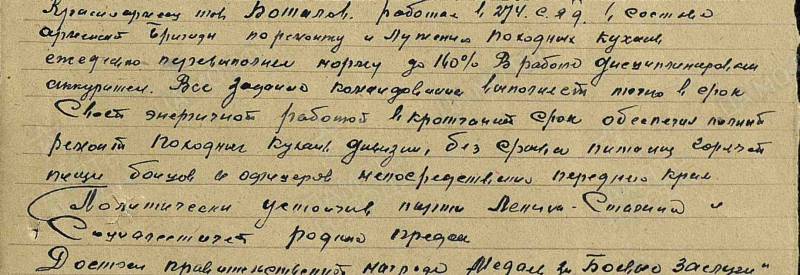 Красноармеец тов Боталов. работая в 274. с. я д. в составе
армейской бригады по ремонту и лужению походных кухонь
ежедневно перевыполнял норму до 160% В работе дисциплинирован
аккуратен. Все задания командования выполняет точно в срок
Своей энергичной работой в кротчаший срок обеспечил полный
ремонт походных кухонь дивизии, без срыва питания горячей
пищи бойцов и офицеров непосредственно передний край
Политически устойчив партии Ленина-Сталина и
Социалистической родине предан
Достоен правительственной награде Медаль за Боевые заслуги"